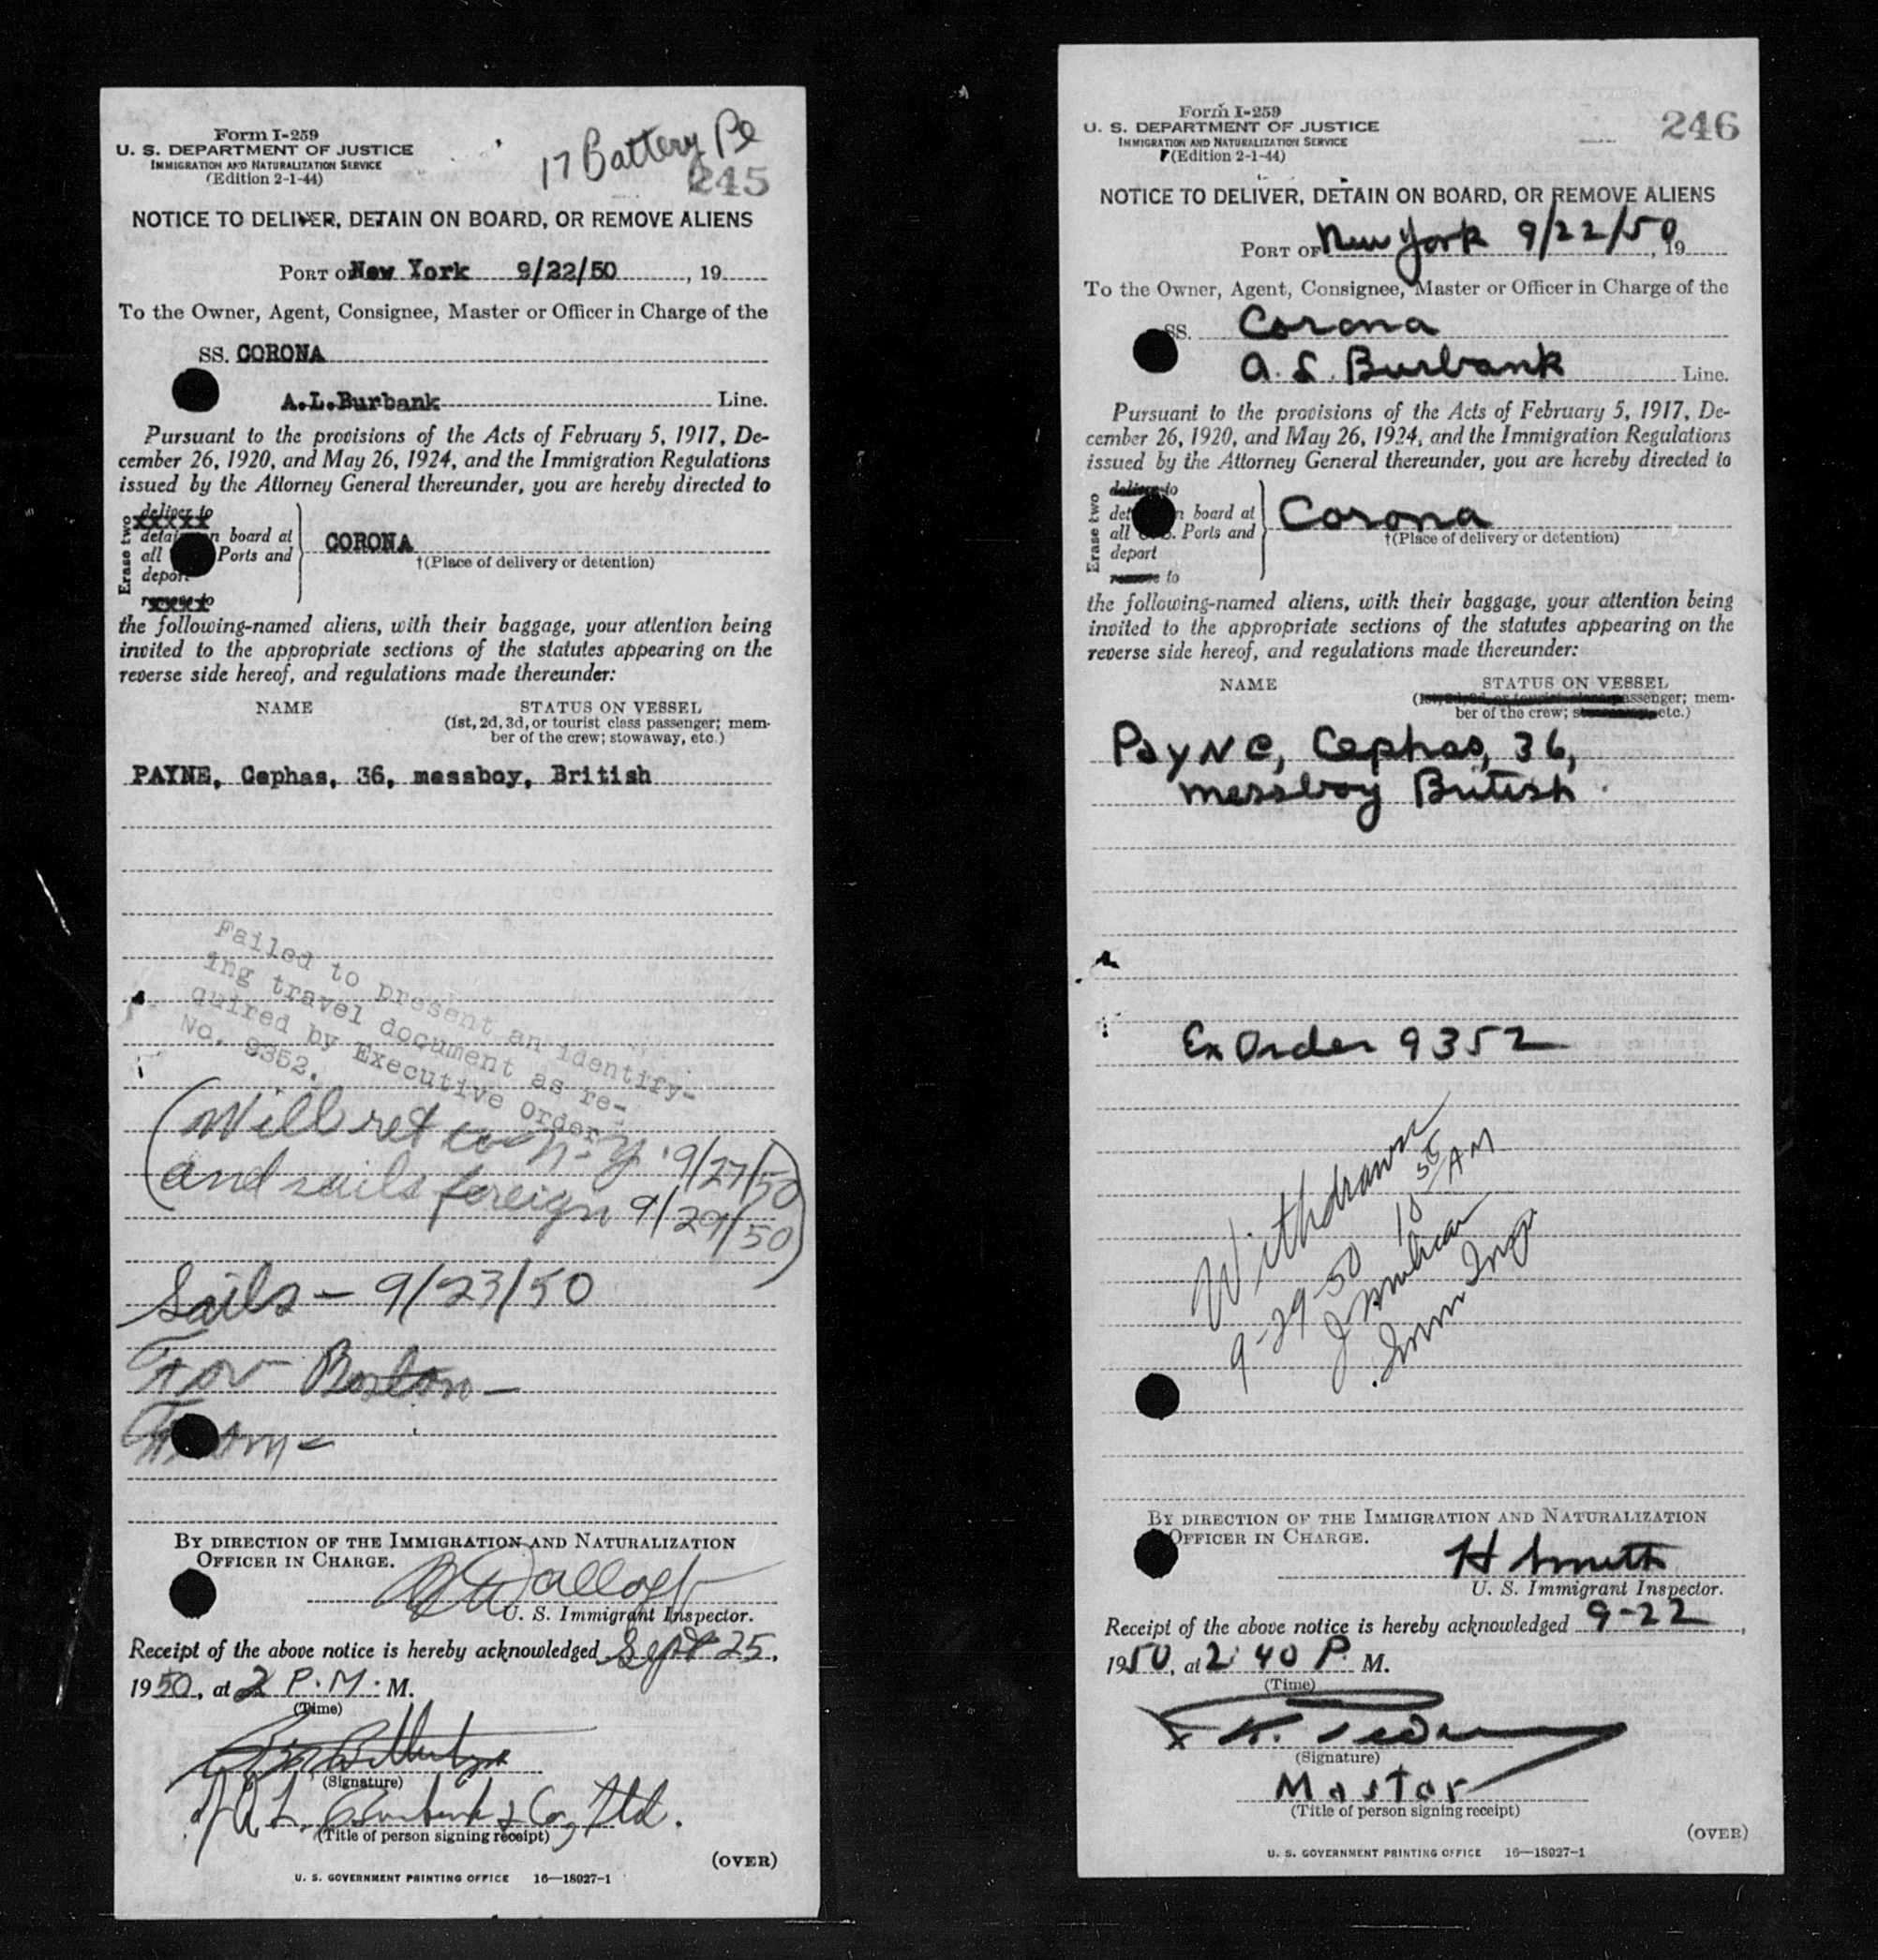 Form I-259
U. S. DEPARTMENT OF JUSTICE
IMMIGRATION AND NATURALIZATION SERVICE
(Edition 2-1-44)
17 Battery Pl
245
NOTICE TO DELIVER, DETAIN ON BOARD, OR REMOVE ALIENS
PORT OF New York 9/22/50, 19
To the Owner, Agent, Consignee, Master or Officer in Charge of the
SS. CORONA
A.L.Burbank Line.
Pursuant to the provisions of the Acts of February 5, 1917, De-
cember 26, 1920, and May 26, 1924, and the Immigration Regulations
issued by the Attorney General thereunder, you are hereby directed to
Erase two
deliver to
detain on board at
all Ports and
deport
remove to
CORONA
†(Place of delivery or detention)
the following-named aliens, with their baggage, your attention being
invited to the appropriate sections of the statutes appearing on the
reverse side hereof, and regulations made thereunder:
NAME STATUS ON VESSEL
(1st, 2d, 3d, or tourist class passenger; mem-
ber of the crew; stowaway, etc.)
PAYNE, Cephas, 36, messboy, British
Failed to present an identify-
ing travel document as re-
quired by Executive Order
No. 9352.
(Will ret to N-Y 9/27/50
and sails foreign 9/29/50)
Sails - 9/23/50
For Boston -
From -
BY DIRECTION OF THE IMMIGRATION AND NATURALIZATION
OFFICER IN CHARGE.
U. S. Immigrant Inspector.
Receipt of the above notice is hereby acknowledged Sept 25,
1950, at 2 P.M. M.
(Time)
(Signature)
A. L. Burbank & Co., Ltd.
(Title of person signing receipt)
(OVER)
U. S. GOVERNMENT PRINTING OFFICE 16—18927-1
Form I-259
U. S. DEPARTMENT OF JUSTICE
IMMIGRATION AND NATURALIZATION SERVICE
(Edition 2-1-44)
246
NOTICE TO DELIVER, DETAIN ON BOARD, OR REMOVE ALIENS
PORT OF New York 9/22/50, 19
To the Owner, Agent, Consignee, Master or Officer in Charge of the
SS. Corona
A. L. Burbank Line.
Pursuant to the provisions of the Acts of February 5, 1917, De-
cember 26, 1920, and May 26, 1924, and the Immigration Regulations
issued by the Attorney General thereunder, you are hereby directed to
Erase two
deliver to
detain on board at
all U.S. Ports and
deport
remove to
Corona
†(Place of delivery or detention)
the following-named aliens, with their baggage, your attention being
invited to the appropriate sections of the statutes appearing on the
reverse side hereof, and regulations made thereunder:
NAME STATUS ON VESSEL
(1st, 2d, 3d, or tourist class passenger; mem-
ber of the crew; stowaway, etc.)
Payne, Cephas, 36,
messboy British
Ex Order 9352
Withdrawn
9-29-50 10 55 AM
Imm Insp
BY DIRECTION OF THE IMMIGRATION AND NATURALIZATION
OFFICER IN CHARGE.
H Smith
U. S. Immigrant Inspector.
Receipt of the above notice is hereby acknowledged 9-22,
1950, at 2:40 P. M.
(Time)
(Signature)
Master
(Title of person signing receipt)
(OVER)
U. S. GOVERNMENT PRINTING OFFICE 16—18927-1